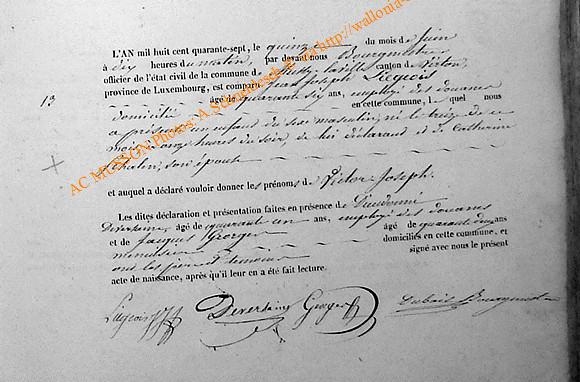 L'AN mil huit cent quarante-sept, le quinze du mois de juin
à dix heures du matin, par devant nous Bourgmestre
officier de l'état civil de la commune de canton de Virton,
province de Luxembourg, est comparu Jean Joseph Liégeois
13
domicilié âgé de quarante six ans, employé des douanes
en cette commune, lequel nous
a présenté un enfant du sexe masculin, né le treize de ce
mois à onze heures du soir, de lui déclarant et de Catherine
son épouse
et auquel a déclaré vouloir donner les prénoms de Victor Joseph.
Les dites déclaration et présentation faites en présence de Dieudonné
Deversaine, âgé de quarante un ans, employé des douanes
et de Jacques Georges âgé de quarante deux ans
menuisier domiciliés en cette commune, et
ont les père et témoins signé avec nous le présent
acte de naissance, après qu'il leur en a été fait lecture.
Liégeois JJ Deversaine Georges Dubois Bourgmestre
AC MUSSON Photos: A.Schneideresch http://wallonia-